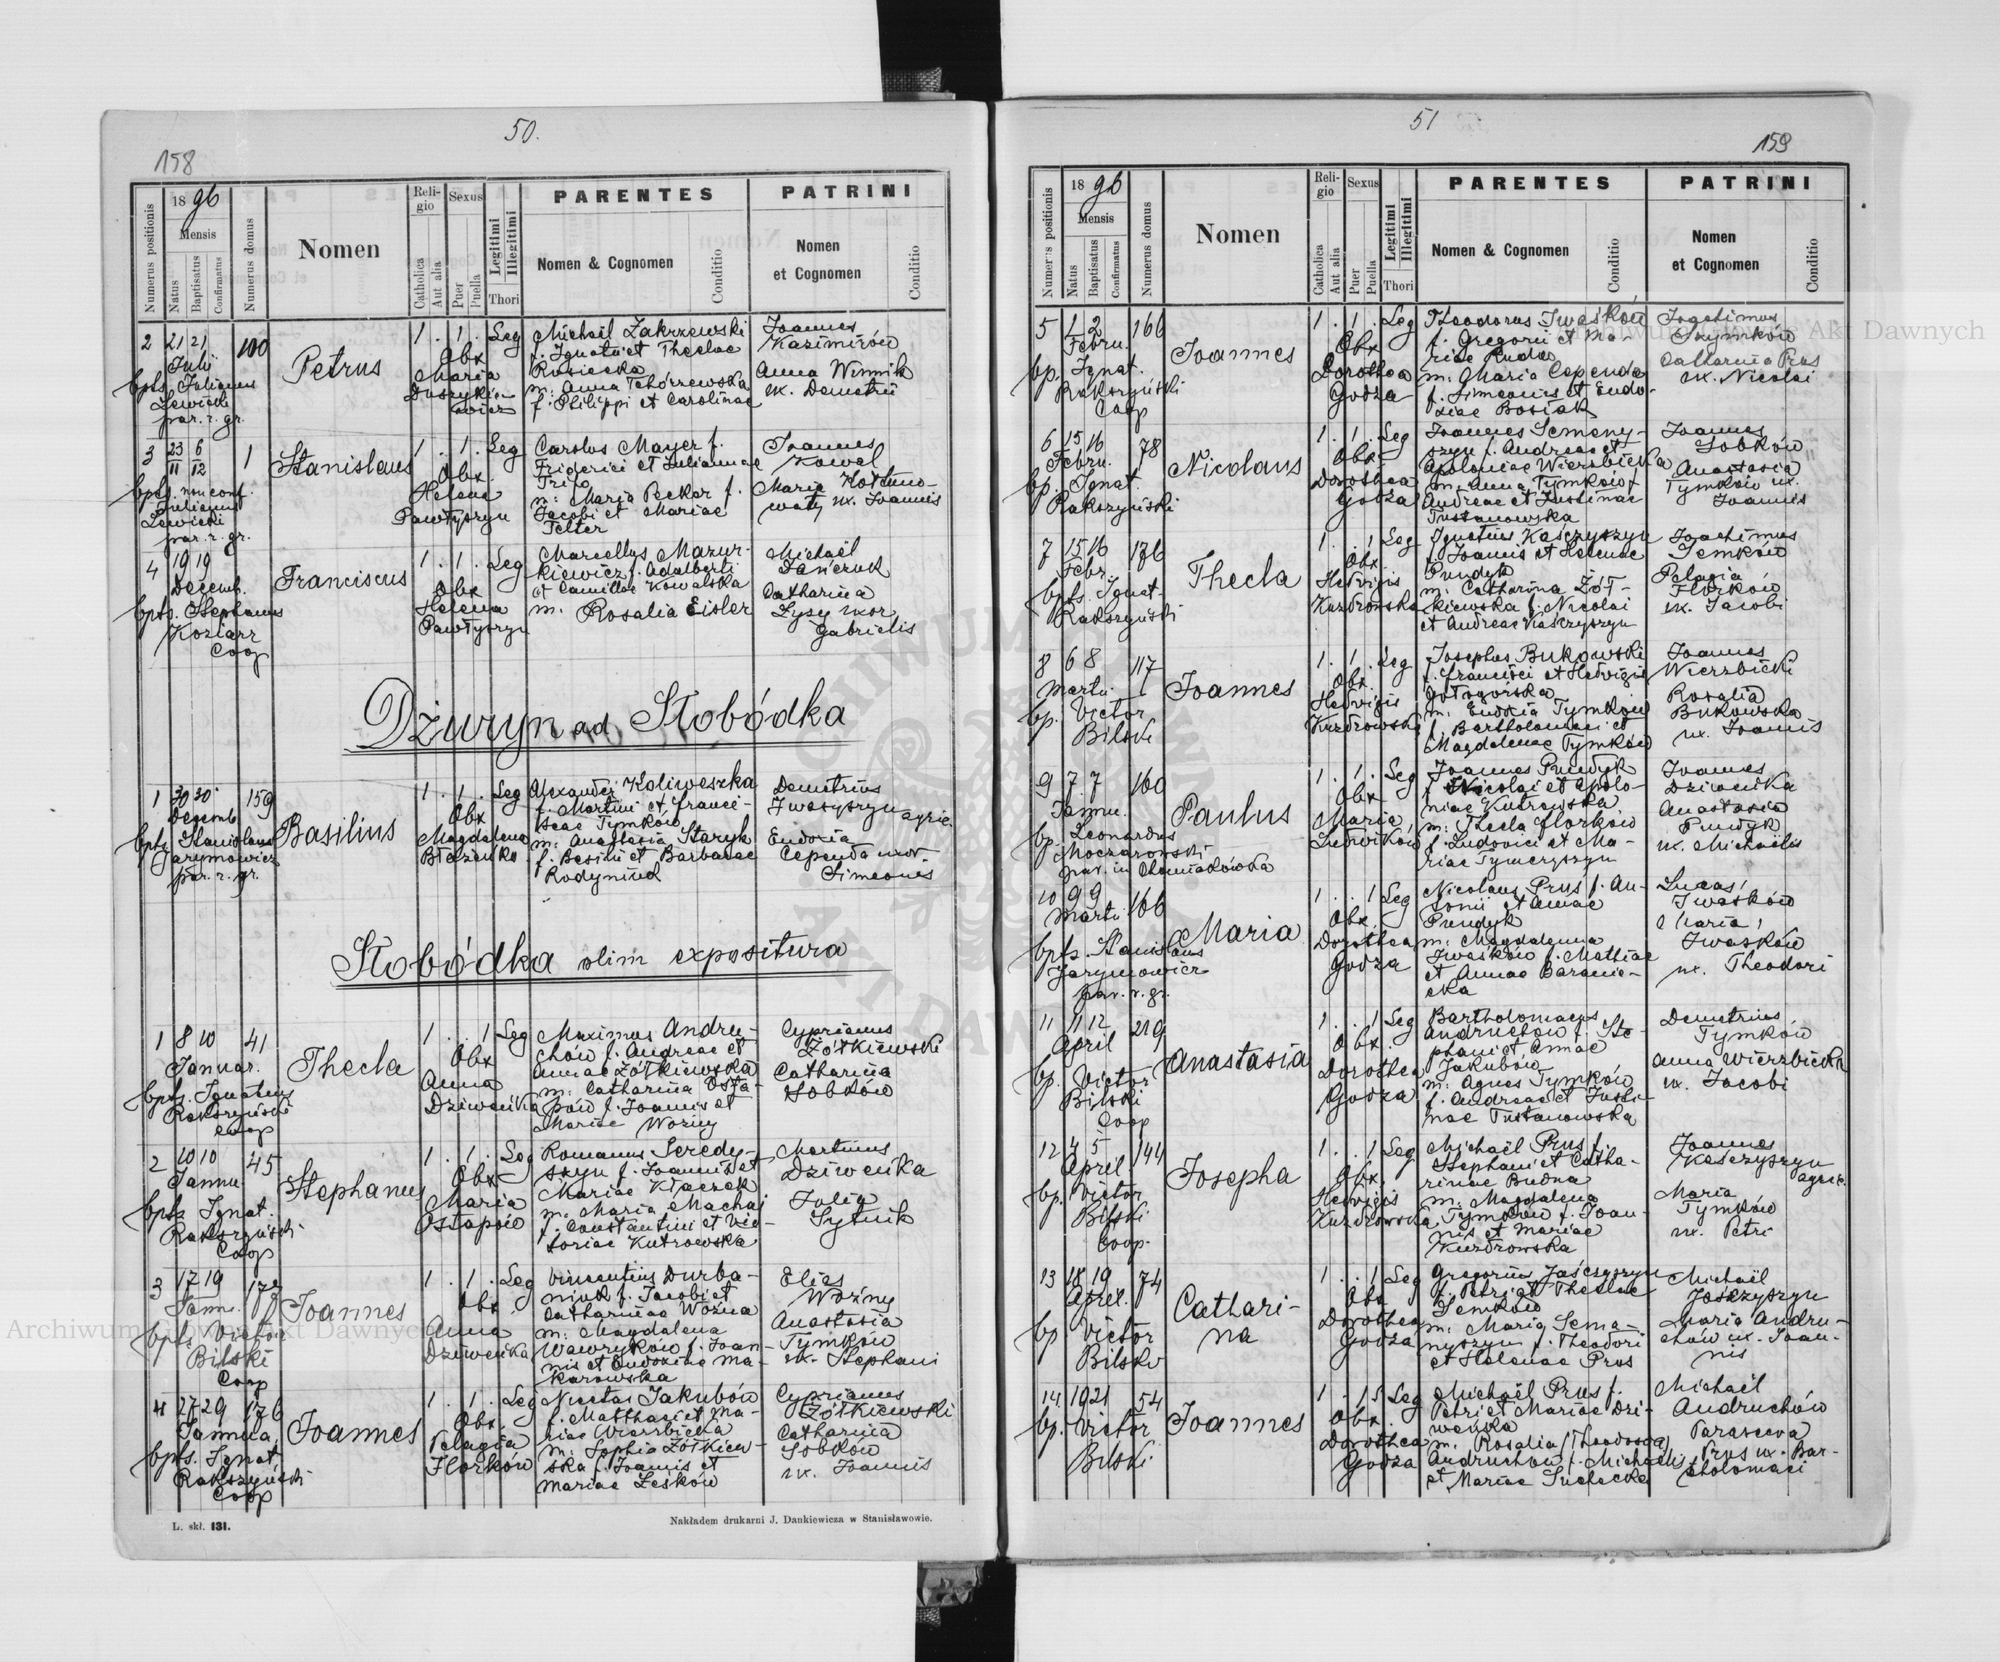 50.
158
Numerus positionis
1896
Mensis
Natus
Baptisatus
Confirmatus
Numerus domus
Nomen
Religio
Catholica
Aut alia
Sexus
Puer
Puella
Legitimi
Illegitimi
Thori
PARENTES
Nomen & Cognomen
Conditio
PATRINI
Nomen
et Cognomen
Conditio
2 21 21 100 Petrus 1 . 1 . Leg
Julii
bpts. Julianus
Lewicki
par. r. gr.
Obx
Maria
Duszykie-
wicz
Michaël Zakrzewski
f. Ignatii et Theclae
Rusiecka
m: Anna Tchórzewska
f. Philippi et Carolinae
Joannes
Kazimirów
Anna Winnik
ux. Demetrii
3 23 6 1 Stanislaus 1 . 1 . Leg
11 12
bpts. non conf.
Julianus
Lewicki
par. r. gr.
Obx.
Helena
Pawłyszyn
Carolus Mayer f.
Friderici et Juliannae
m: Maria Pecker f.
Jacobi et Mariae
Felter
Joannes
Kowal
Maria
ux. Joannis
4 19 19 Franciscus 1 . 1 . Leg
Decemb.
bpts. Stephanus
Coop
Obx
Helena
Pawłyszyn
Marcellus Mazur-
kiewicz f. Adalberti
et Camillae Kowalska
m. Rosalia Eisler
Michaël
Danczuk
Catharina
Łysy uxor
Gabrielis
Dżuryn ad Słobódka
1 30 30 159 Basilius 1 . 1 . Leg
Decemb
bpts Stanislaus
Jarymowicz
par. r. gr.
Obx
Magdalena
Błażenko
Alexander Koliweszka
f. Martini et Franci-
scae Tymków
m: Anastasia Staryk
f. Basilii et Barbarae
Rodyniuk
Demetrius
Iwasyszyn agric.
Eudoxia
Cependa uxor.
Simeonis
Słobódka olim expositura
1 8 10 41 Thecla 1 . . 1 Leg
Januar.
bpts. Ignatius
Rakszyński
coop
Obx
Anna
Dziweńka
Maximus Andru-
chów f. Andreae et
Annae Żółkiewska
m: Catharina Osta-
pów f. Joannis et
Mariae Woźny
Cyprianus
Żółkiewski
Catharina
Sobków
2 10 10 45 Stephanus 1 . 1 . Leg
Januar
bpts Ignat.
Rakszyński
Coop
Obx
Maria
Ostapów
Romanus Seredy-
szyn f. Joannis et
Mariae Kłaczek
m. Maria Machaj
f. Constantini et Vic-
toriae Kutrowska
Martinus
Dziweńka
Julia
Sytnik
3 17 19 172 Joannes 1 . 1 . Leg
Janu.
bpts Victor
Bilski
Coop
Obx
Anna
Dziweńka
Vincentius Durba-
niuk f. Jacobi et
Catharinae Woźna
m: Magdalena
Wawryków f. Joan-
nis et Eudoxiae Ma-
karowska
Elias
Woźny
Anastasia
Tymków
ux. Stephani
4 27 29 176 Joannes 1 . 1 . Leg
Janua.
bpts. Ignat.
Rakszyński
Coop
Obx.
Pelagia
Florków
Nicetas Jakubów
f. Matthaei et Ma-
riae Wierzbicka
m: Sophia Żółkiew-
ska f. Joannis et
Mariae Leśków
Cyprianus
Żółkiewski
Catharina
Sobków
ux. Joannis
L. skł. 131.
Nakładem drukarni J. Dankiewicza w Stanisławowie.
51
159
Numerus positionis
1896
Mensis
Natus
Baptisatus
Confirmatus
Numerus domus
Nomen
Religio
Catholica
Aut alia
Sexus
Puer
Puella
Legitimi
Illegitimi
Thori
PARENTES
Nomen & Cognomen
Conditio
PATRINI
Nomen
et Cognomen
Conditio
5 1 2 166 Joannes 1 . 1 . Leg
Febru.
bp. Ignat.
Rakszyński
Coop
Obx
Dorothea
Godza
Theodorus Iwaśków
f. Gregorii et Ma-
riae Rudna
m: Maria Cependa
f. Simeonis et Eudo-
xiae Bosiak
Joachimus
Szymków
Catharina Prus
ux. Nicolai
6 15 16 78 Nicolaus 1 . 1 . Leg
Febru.
bp. Ignat.
Rakszyński
Obx.
Dorothea
Godza
Joannes Semeny-
szyn f. Andreae et
Apoloniae Wierzbicka
m: Anna Tymków f.
Andreae et Justinae
Tustanowska
Joannes
Sobków
Anastasia
Tymków ux.
Joannis
7 15 16 176 Thecla 1 . . 1 Leg
Febr.
bpts. Ignat.
Rakszyński
Obx.
Hedvigis
Kuzdrowska
Ignatius Kaśczyszyn
f. Joannis et Helenae
Pundyk
m: Catharina Żół-
kiewska f. Nicolai
et Andreae Kaśczyszyn
Joachimus
Semków
Pelagia
Florków
ux. Jacobi
8 6 8 117 Joannes 1 . 1 . Leg
Martii
bp. Victor
Bilski
Obx.
Hedvigis
Kuzdrowski
Josephus Bukowski
f. Francisci et Hedvigis
m: Eudoxia Tymków
f. Bartholomaei et
Magdalenae Tymków
Joannes
Wierzbicki
Rosalia
Bukowska
ux. Joannis
9 7 7 160 Paulus 1 . 1 . Leg
Janu.
bp. Leonardus
Moczarowski
par. in Chomiakówka
Obx
Maria
Ludwików
Joannes Pundyk
f. Nicolai et Apolo-
niae Kutrowska
m: Thecla Florków
f. Ludovici et Ma-
riae Tymczyszyn
Joannes
Dziweńka
Anastasia
Pundyk
ux. Michaëlis
10 9 9 166 Maria 1 . . 1 Leg
Martii
bpts. Stanislaus
Jarymowicz
par. r. gr.
Obx.
Dorothea
Godza
Nicolaus Prus f. An-
tonii et Annae
Pundyk
m: Magdalena
Iwaśków f. Mathiae
et Annae Baranie-
cka
Lucas
Iwaśków
Maria
Iwaśków
ux. Theodori
11 11 12 219 Anastasia 1 . . 1 Leg
April
bp. Victor
Bilski
Coop
Obx.
Dorothea
Godza
Bartholomaeus
Andruchów f. Ste-
phani et Annae
Jakubów
m: Agnes Tymków
f. Andreae et Justi-
nae Tustanowska
Demetrius
Tymków
Anna Wierzbicka
ux. Jacobi
12 4 5 144 Josepha 1 . . 1 Leg
April
bp. Victor
Bilski
Coop.
Obx.
Hedvigis
Kuzdrowska
Michaël Prus f.
Stephani et Catha-
rinae Budna
m: Magdalena
Tymków f. Joan-
nis et Mariae
Kuzdrowska
Joannes
Kaśczyszyn
agric.
Maria
Tymków
ux. Petri
13 18 19 74 Cathari-
na 1 . . 1 Leg
April.
bp Victor
Bilski
Obx
Dorothea
Godza
Gregorius Jaśczyszyn
f. Petri et Theclae
Semków
m: Maria Seme-
nyszyn f. Theodori
et Helenae Prus
Michaël
Jaśczyszyn
Maria Andru-
chów ux. Joan-
nis
14. 19 21 54 Joannes 1 . 1 Leg
bp. Victor
Bilski
Obx.
Dorothea
Godza
Michaël Prus f.
Petri et Mariae Dzi-
weńska
m. Rosalia (Theodosia)
Andruchów f. Michaëlis
et Mariae Suchecka
Michaël
Andruchów
Parasceva
Prus ux. Bar-
tholomaei
Archiwum Główne Akt Dawnych
Archiwum Główne Akt Dawnych